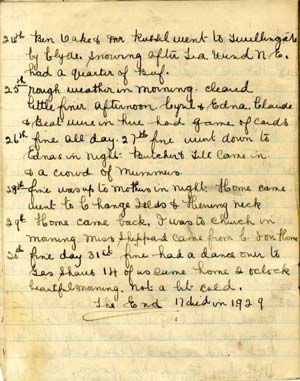 24th Ken Oake & Mr Russel went to Twillingate
by Clyde. snowing after Tea Wind N.E.
had a quarter of beef.
25th rough weather in morning. cleared
little finer afternoon Cyril & Edna. Claude
& Beat were in here had game of cards
26th fine all day. 27th fine went down to
Ednas in night. & came in
& a crowd of Mummers.
28th fine was up to Mothers in night. Home came
went to Change Islds & Herring neck
29th Home came back. I was to church in
morning Miss Sheppard came from
30th fine day 31st fine had a dance over to
Shaus 14 of us came home 2 oclock
beautiful morning. Not a bit cold.
The End in 1929